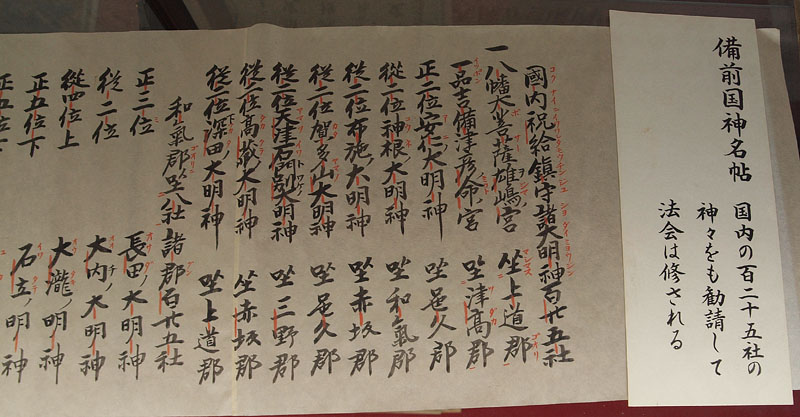 備前国神名帖
国内の百二十五社の
神々をも勧請して
法会は修される
國内祝給鎮守諸大明神百廿五社
一八幡大菩薩雄嶋ノ宮 坐上道郡
一品吉備津彦命ノ宮 坐津髙郡
正二位安仁大明神 坐邑久郡
從二位神根ノ大明神 坐和氣郡
從二位布施ノ大明神 坐赤坂郡
從二位賀多山大明神 坐邑久郡
從二位天津石門別大明神 坐三野郡
從二位髙蔵ノ大明神 坐赤坂郡
從二位深田大明神 坐上道郡
和氣郡坐八社 諸郡百廿五社
正三位 長田ノ大明神
從二位 大内ノ大明神
從四位上 大瀧ノ明神
正五位下 石立ノ明神
正五位下